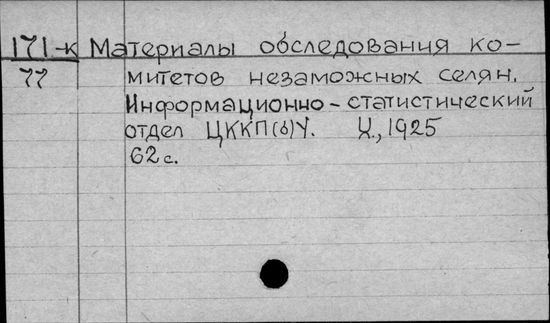 171-к Материалы обследования ко-
77 митетов незаможных селян.
Информационно-статистический
отдел ЦККП(б)У. Х., 1925
62 с.